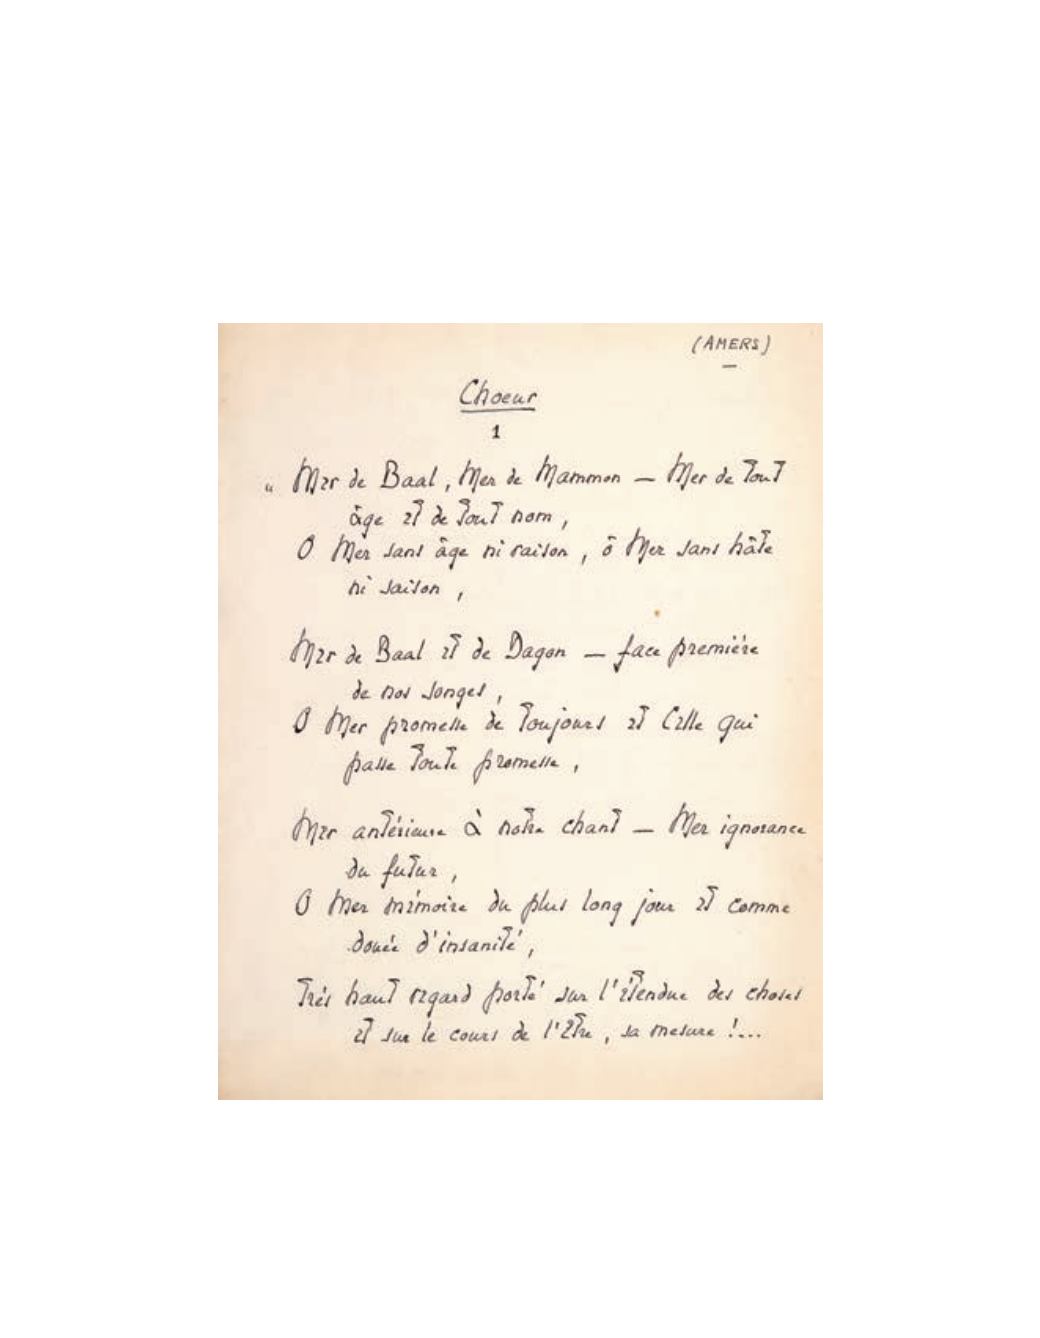 (AMERS)
Choeur
1
" Mer de Baal, Mer de Mammon — Mer de tout
âge et de tout nom,
Ô Mer sans âge ni raison, ô Mer sans hâte
ni saison,
Mer de Baal et de Dagon — face première
de nos songes,
Ô Mer promesse de toujours et Celle qui
passe toute promesse,
Mer antérieure à notre chant — Mer ignorance
du futur,
Ô Mer mémoire du plus long jour et comme
douée d'insanité,
Très haut regard porté sur l'étendue des choses
et sur le cours de l'Etre, sa mesure !...